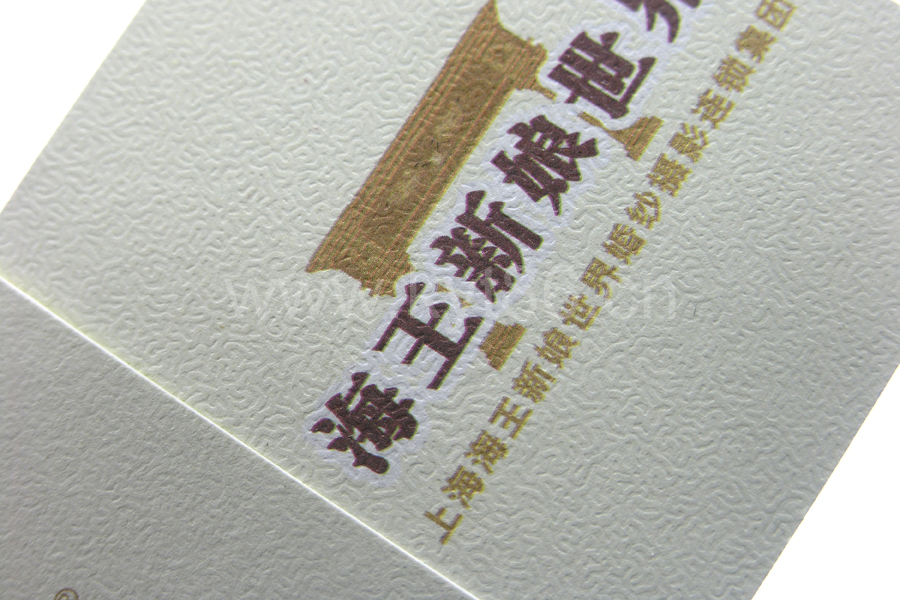 海王新娘世界
上海海王新娘世界婚纱摄影连锁集团